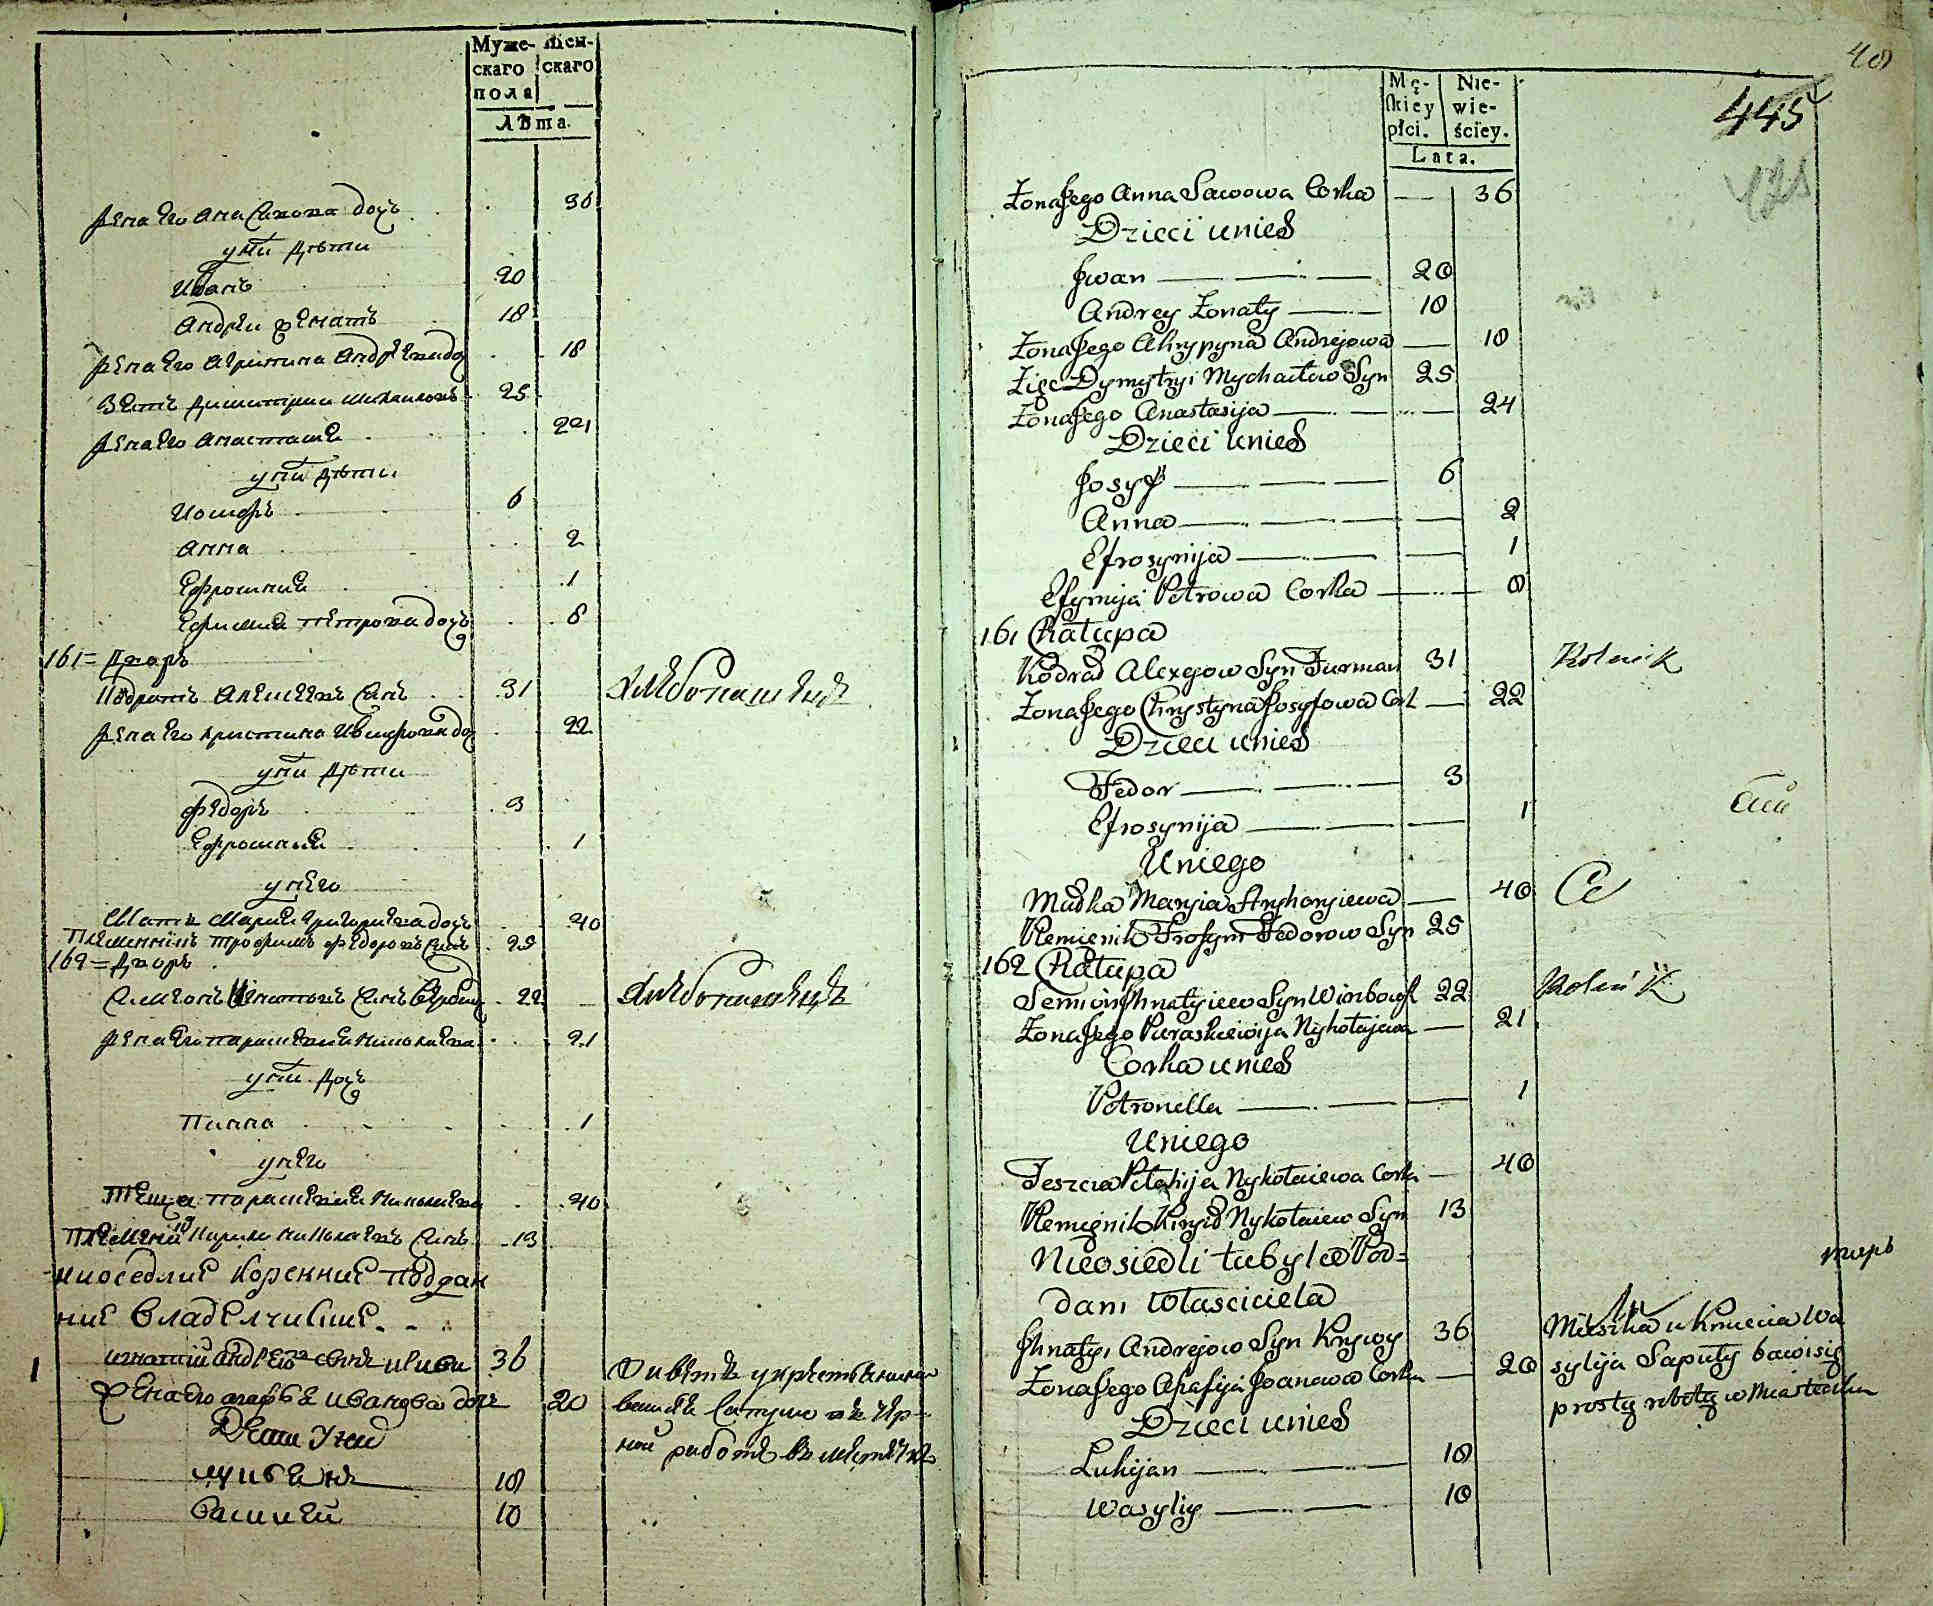 Муже-
скаго
пола
Жен-
скаго
Лѣта.
Жена Его Ана Савова доч.
у них Дѣти
Иванъ 20
Андрей женатъ 18
Жена Его Агрипина Андреева до 18
Зять Димитрий Михайловъ 25
Жена Его Анастасия 24
у них Дѣти
Иосифъ 6
Анна 2
Ефросиния 1
Ефимия Петрова доч. 8
161 = Дворъ
Кодратъ Алексеевъ Синъ 31 Хлебопашецъ
Жена Его Христина Иосифова до 22
у них Дѣти
Федоръ 3
Ефросиния 1
у него
Мать Мария Григориева доч. 40
Племенникъ Трофимъ Федоровъ Синъ 25
162 = Дворъ
Симеонъ Игнатовъ Синъ 22 Хлебопашецъ
Жена Его Параскевия Николаева 21
у них Доч.
1
у него
Теща Параскевия Николаева 40
Племеник Кирилъ Николаевъ Синъ 13
Ниоседлие коренние поддан
ние владелчиские.
1 Игнатий Андреевъ Синъ 36
Жена его Агафия Иванова доч 20
Дети у них
Лукиянъ 10
Василей 10
работе в местечке
40
445
Mę-
skiey
płci.
Nie-
wie-
ściey.
Lata.
Żona Jego Anna Sawowa Corka — 36
Dzieci u nich
Jwan — 20
Andrey Żonaty — 18
Żona Jego Ahrypyna Andrejowa — 18
Zięc Dymytryi Mychaiłow Syn 25
Żona Jego Anastasija — 24
Dzieci u nich
Josyf — 6
Anna — 2
Efrosynija — 1
Efymija Petrowa Corka — 8
161 Chałupa
Kodrad Alexyow Syn Furman 31 Rolnik
Żona Jego Chrystyna Josyfowa Cor — 22
Dzieci u nich
Fedor — 3
Efrosynija — 1
U niego
Matka Maryia Hryhoryiewa — 40
Plemienik Trofym Fedorow Syn 25
162 Chałupa
Semion Jhnatyiew Syn 22 Rolnik
Żona Jego Paraskiewija Nykołajewa — 21
Corka u nich
Petronella — 1
U niego
Teszcza Pelahija Nykołaiewa Corka — 40
Plemięnik Kirył Nykołaiew Syn 13
Nieosiedli tubylce Pod=
dani właściciela
Jhnatyi Andrejow Syn Krywy 36 Mieszka u Kmiecia Wa
Żona Jego Ahafija Joanowa Corka — 20 sylija Saputy bawi się
prostą robotą w Miasteczku
Dzieci u nich
Lukijan — 10
Wasyliy — 10